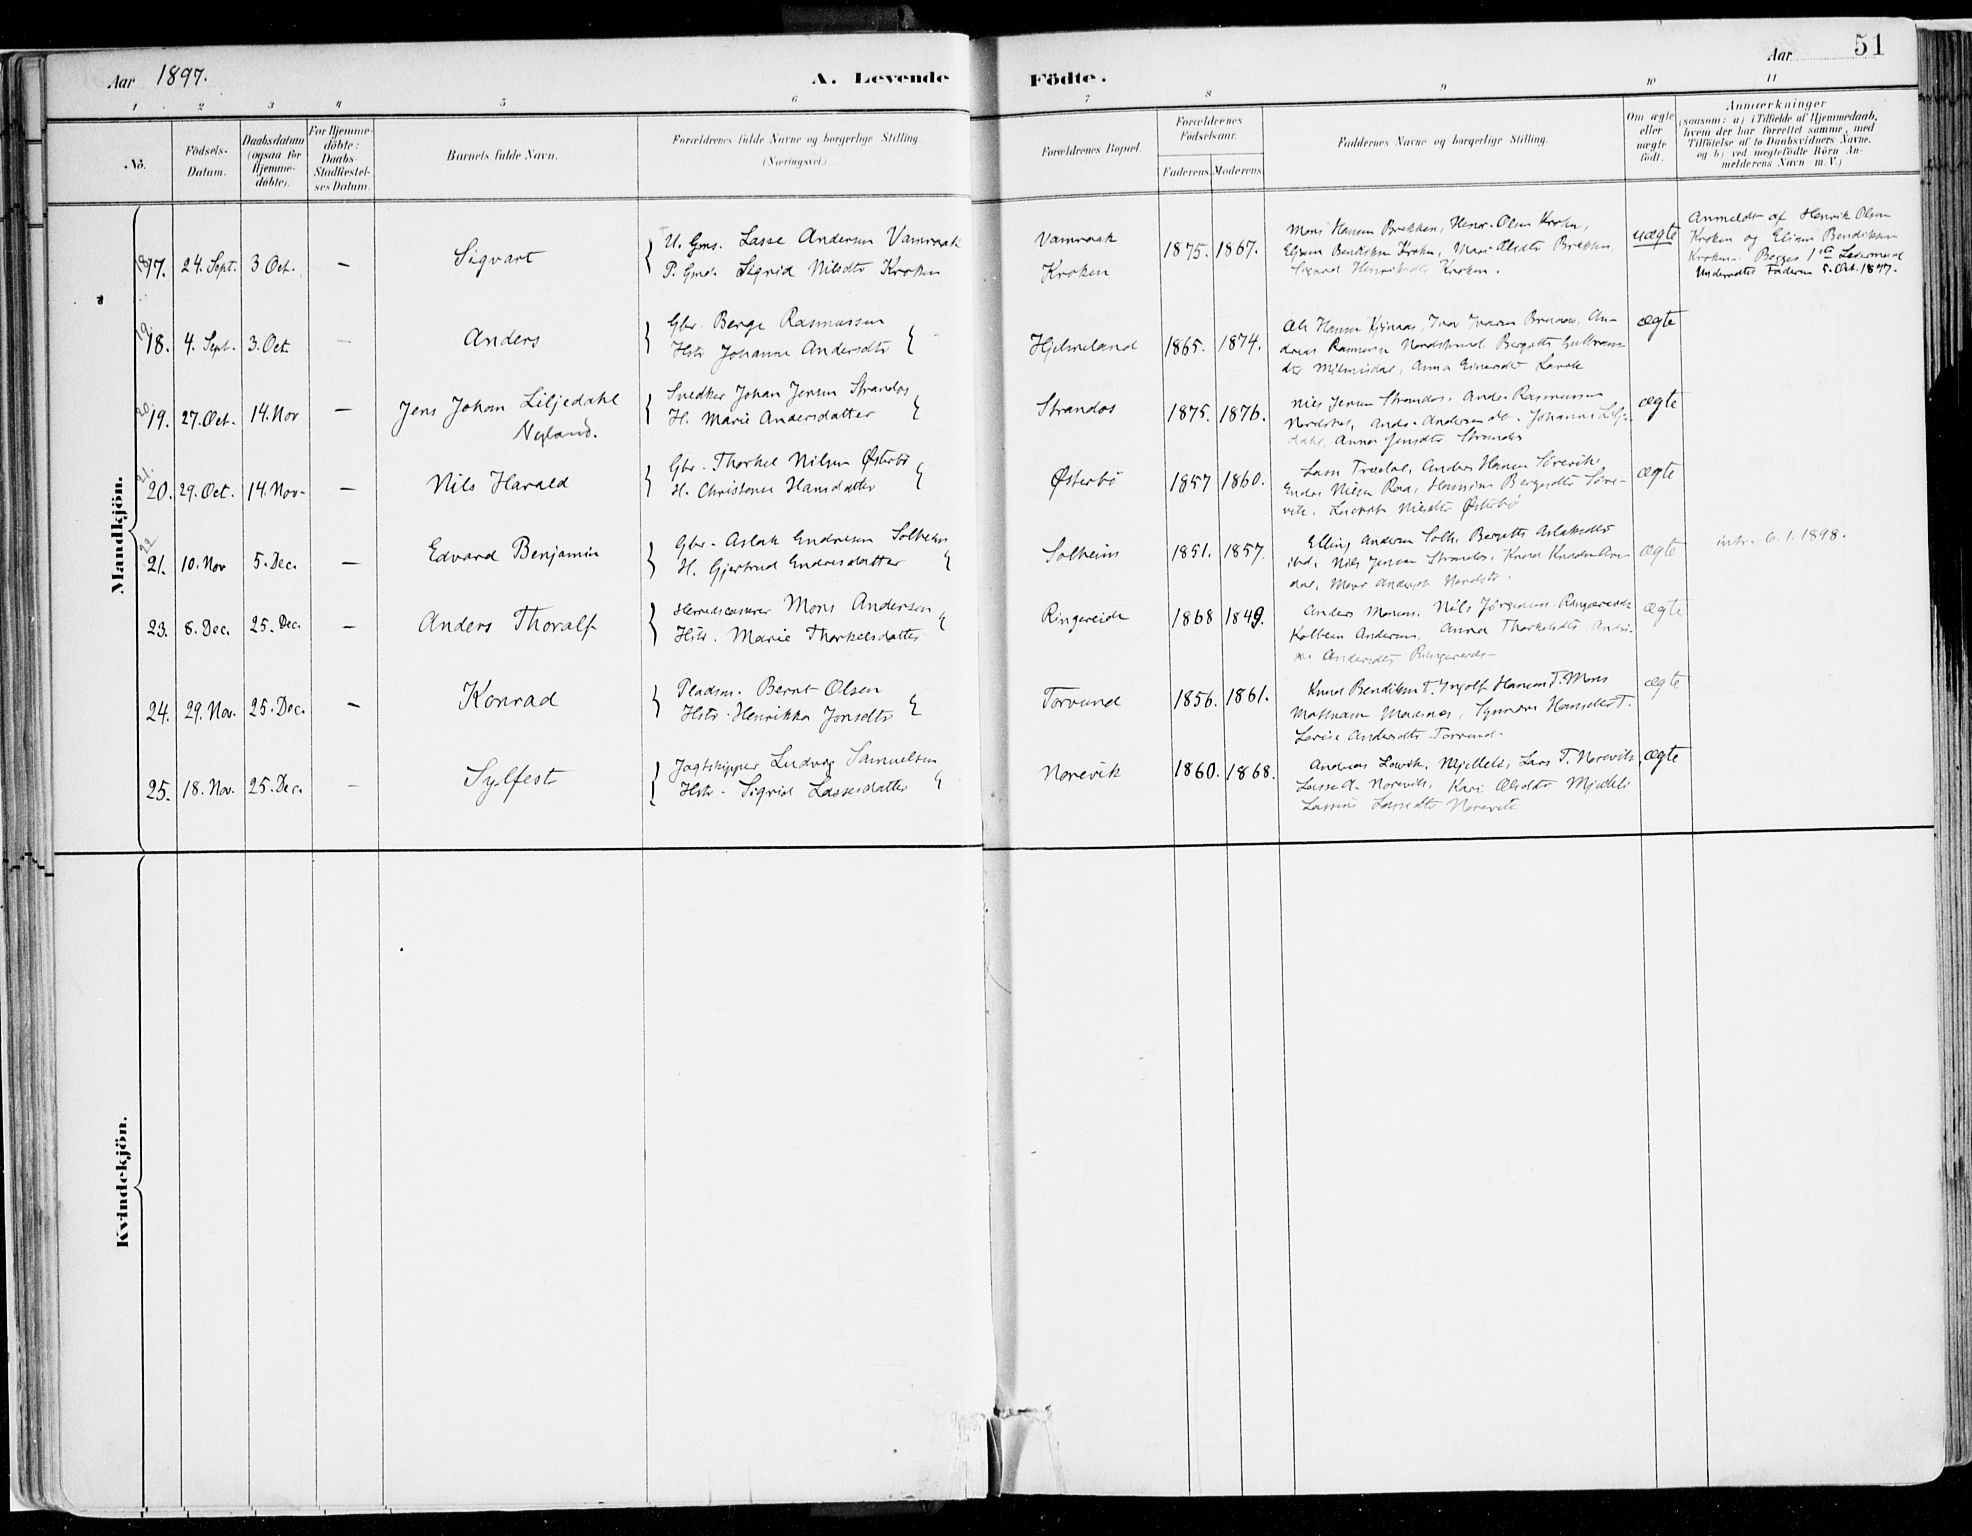 Aar 1897.
A. Levende Födte.
Aar 51
1 2 3 4 5 6 7 8 9 10 11
No.
Födsels-
Datum.
Daabsdatum
(ogsaa for
Hjemme-
döbte).
For Hjemme-
döbte:
Daabs
Stadfæstel-
ses Datum.
Barnets fulde Navn.
Forældrenes fulde Navne og borgerlige Stilling
(Næringsvei).
Forældrenes Bopæl.
Forældrenes
Födselsaar.
Faderens. Moderens.
Faddernes Navne og borgerlige Stilling.
Om ægte
eller
uægte
födt.
Anmærkninger
(saasom: a) i Tilfælde af Hjemmedaab,
hvem der har forrettet samme, med
Tilföielse af to Daabsvidners Navne.
og b) ved uægtefödte Börn An-
melderens Navn m. V.)
Mandkjön.
18 17. 24. Sept. 3 Oct. — Sigvart
U. Gms. Lasse Andersen Vamraak
P. Gmd. Sigrid Nilsdtr Kroken
Vamraak
Kroken
1875. 1867.
Mons Hansen Brekken, Henr. Olsen Kroken,
Eliseus Bendiksen Kroken, Mari Olsdtr Brekken,
Sigrid Henriksdtr Kroken.
uægte
Anmeldt af Henrik Olsen
Kroken og Eliseus Bendiksen
Kroken. Begges 1ste Leiermaal
Underrettet Faderen 5. Oct. 1897.
19. 18. 4. Sept. 3. Oct. — Anders
Gbr. Berge Rasmussen
Hstr Johanne Andersdtr
Hjelmeland
1865. 1874.
Ole Hansen Iver Iversen An-
dreas Rasmussen Nordstrand, Bergitte
dtr Anna
ægte
20. 19. 27. Oct. 14. Nov — Jens Johan Liljedahl
Nyland.
Snedker Johan Jensen Strandos
H. Marie Andersdatter
Strandos
1875. 1876.
Nils Jensen Strandos, Ands. Rasmussen
Ands. Andersen do. Johanne Lilje-
dahl, Anna Jensdtr Strandos
ægte
21. 20. 29. Oct. 14. Nov. — Nils Harald
Gbr. Thorkel Nilsen Østerbö
H. Christense Hansdatter
Østerbö
1857 1860.
Lasse Anders Hansen Sörevik,
Endre Nilsen Hansine Bergesdtr Söre-
vik. Nilsdtr Østerbö
ægte
22 21. 10. Nov 5. Dec. — Edvard Benjamin
Gbr. Aslak Endresen Solheim
H. Gjertrud Endresdatter
Solheim
1851. 1857.
Elling Andersen Solh. Bergitte Aslaksdtr
ibd, Nils Jensen Strandos, Knud Knudsen
dal, Mari Andersdtr
ægte
intr. 6.1.1898.
23. 8. Dec. 25. Dec. — Anders Thoralf
Herredskasserer Mons Andersen
Hstr. Marie Thorkelsdatter
Ringereide
1868 1849.
Anders Monsen, Nils Jörgensen Ringereide
Kolbein Andersen, Anna Thorkelsdtr
Andersdtr Ringereide
ægte
24. 29. Nov. 25. Dec. — Konrad
Pladsm. Bernt Olsen
Hstr. Henrikka Jonsdtr
Torvund
1856. 1861.
Knud Bendiksen T. Ingolf Hansen T. Mons
Mathiasen Synneve Hansdtr T.
Lovise Andersdtr Torvund
ægte
25. 18. Nov. 25. Dec. — Sylfest
Jagtskipper Ludvig Samuelsen
Hstr. Sigrid Lassesdatter
Norevik
1860. 1868.
Andreas Mjellels, Lars T. Norevik,
Lasse A. Norevik, Kari Olsdtr Mjellels
Lassine Lassedtr Norevik
ægte
Kvindekjön.